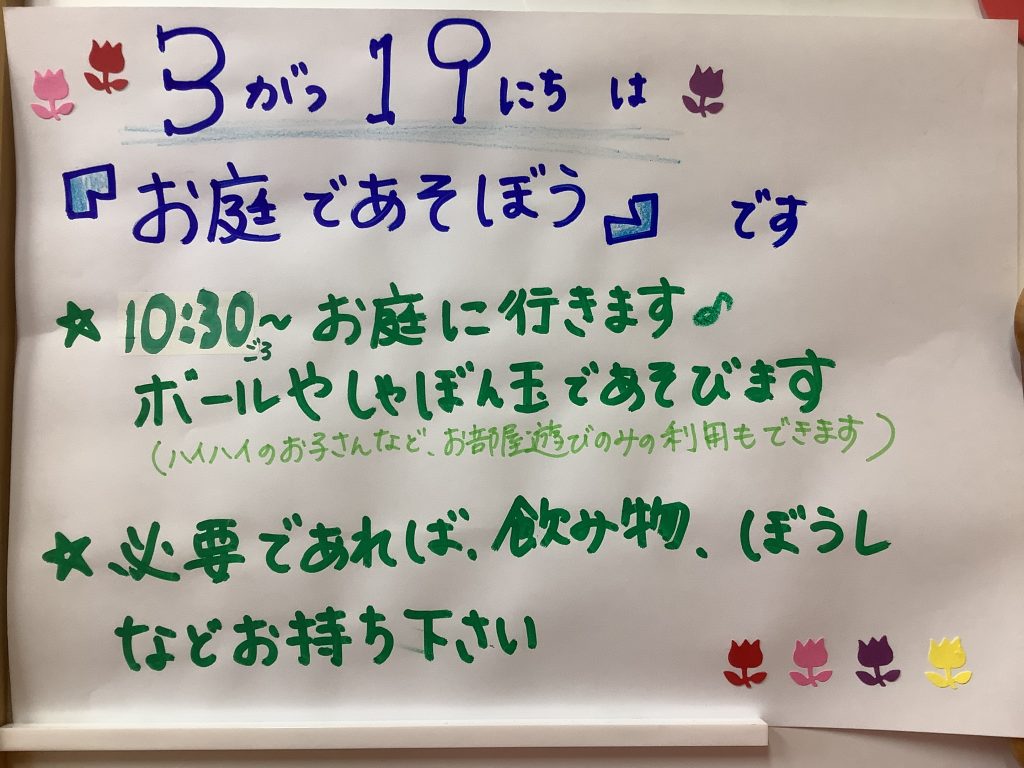 3がつ19にちは
『お庭であそぼう』です
☆10:30ごろ~お庭に行きます♪
ボールやしゃぼん玉であそびます
(ハイハイのお子さんなど、お部屋遊びのみの利用もできます)
☆必要であれば、飲み物、ぼうし
などお持ち下さい